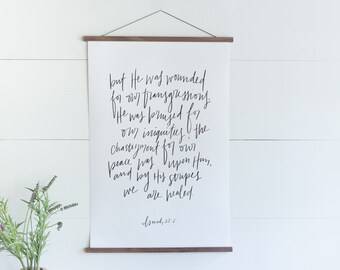 but He was wounded
for our transgressions
He was bruised for
our iniquities: the
chastisement for our
peace was upon Him,
and by His stripes
we are healed
Isaiah 53:5